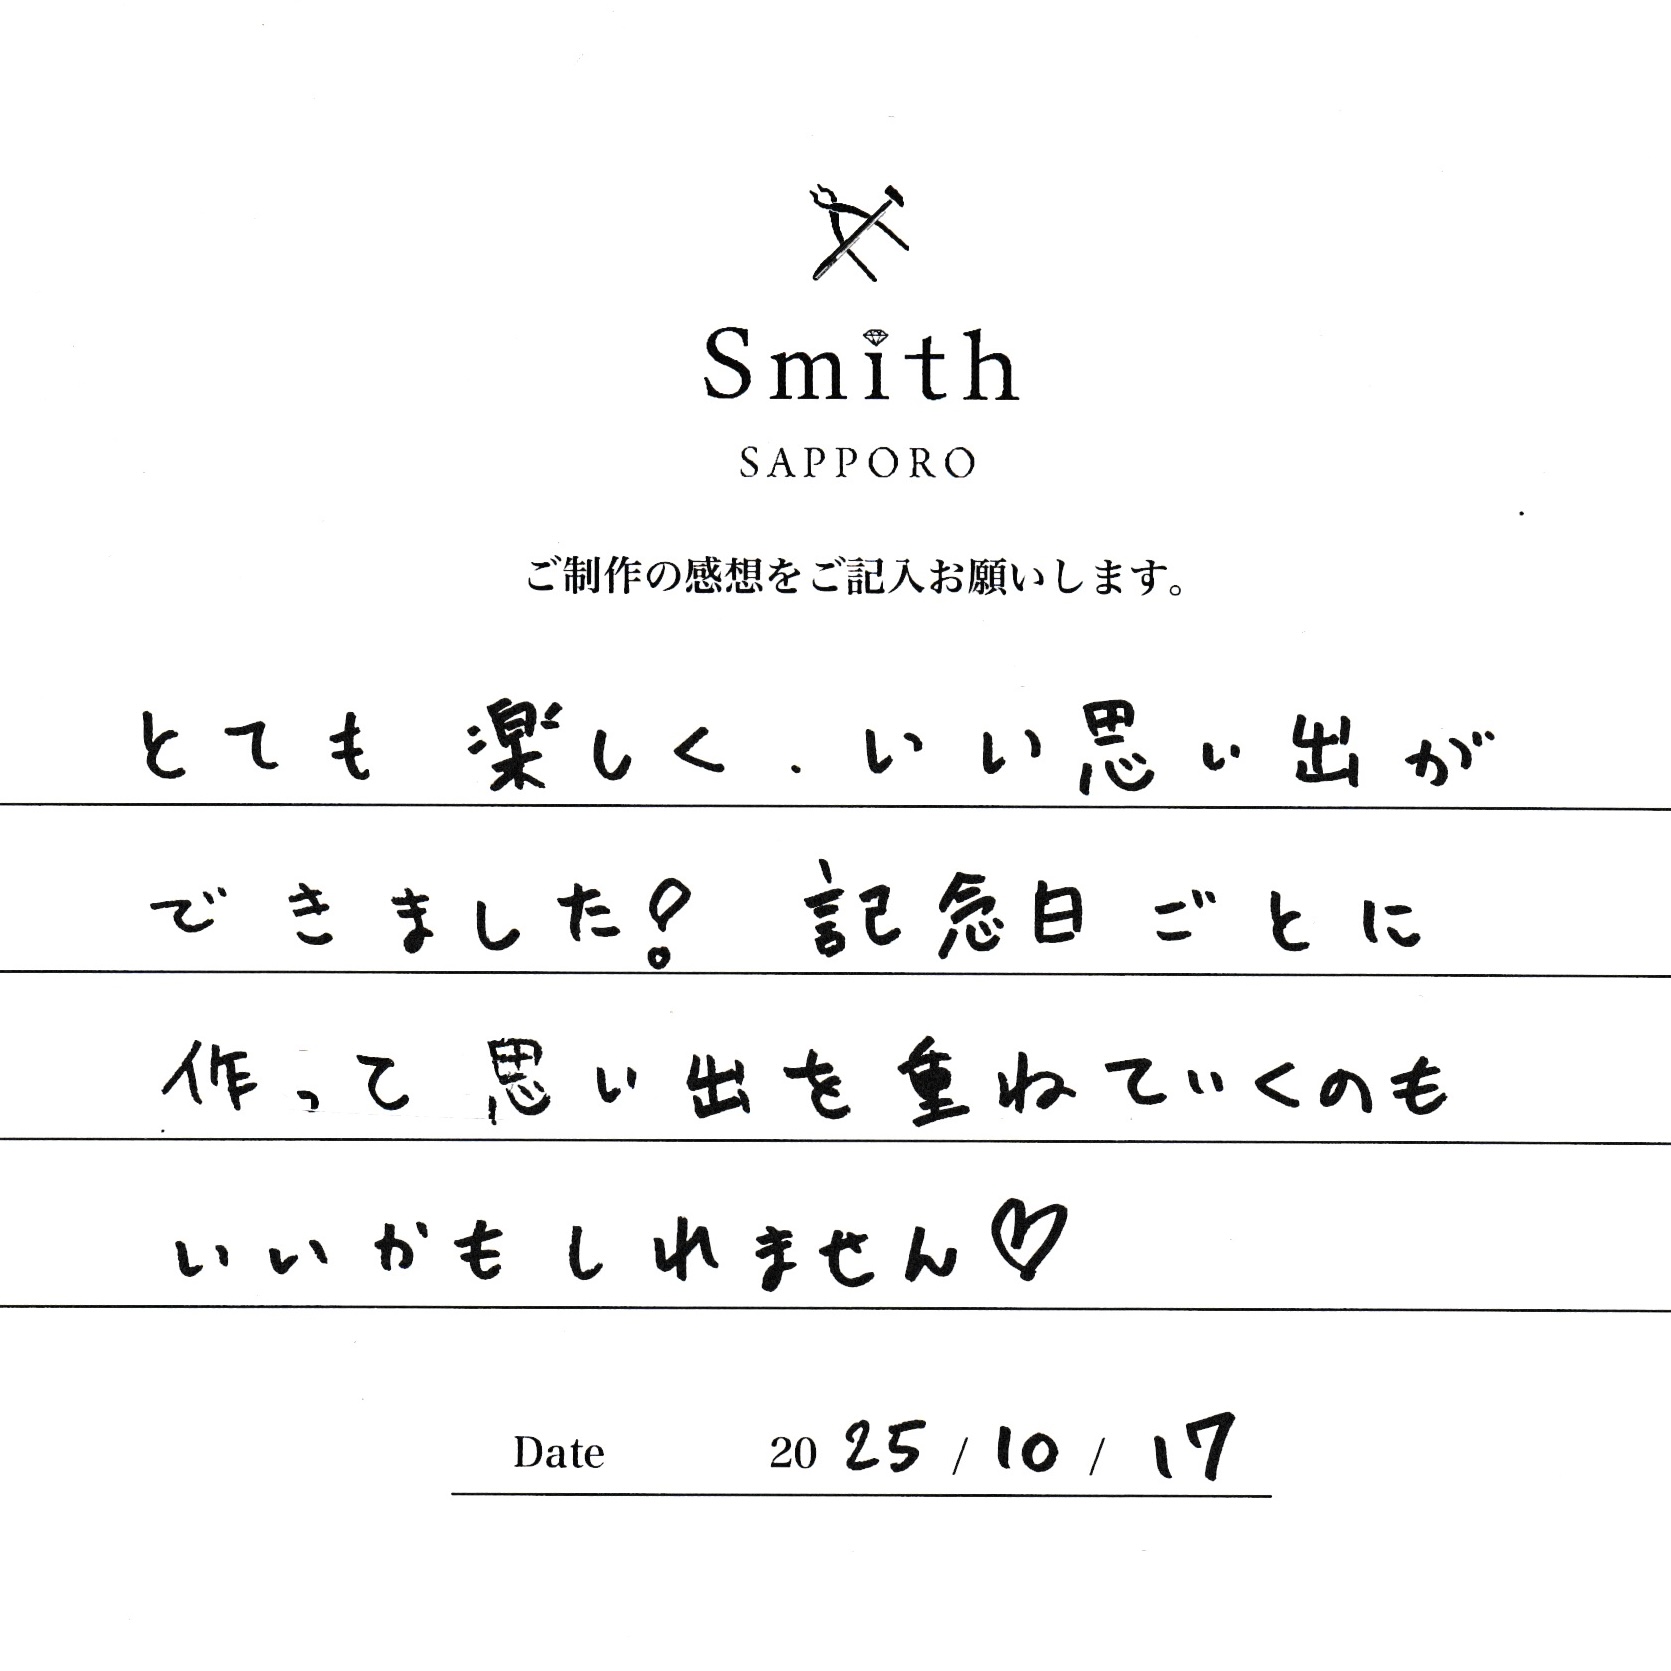 Smith
SAPPORO
ご制作の感想をご記入お願いします。
とても 楽しく、いい思い出が
できました! 記念日ごとに
作って 思い出を重ねていくのも
いいかもしれません♡
Date 2025/10/17